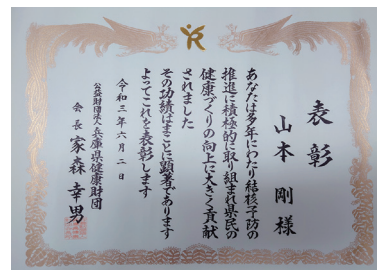 表彰
山本 剛 様
あなたは多年にわたり結核予防の
推進に積極的に取り組まれ県民の
健康づくりの向上に大きく貢献
されました
その功績はまことに顕著であります
よってこれを表彰します
令和三年六月二日
公益財団法人兵庫県健康財団
会長 家森幸男